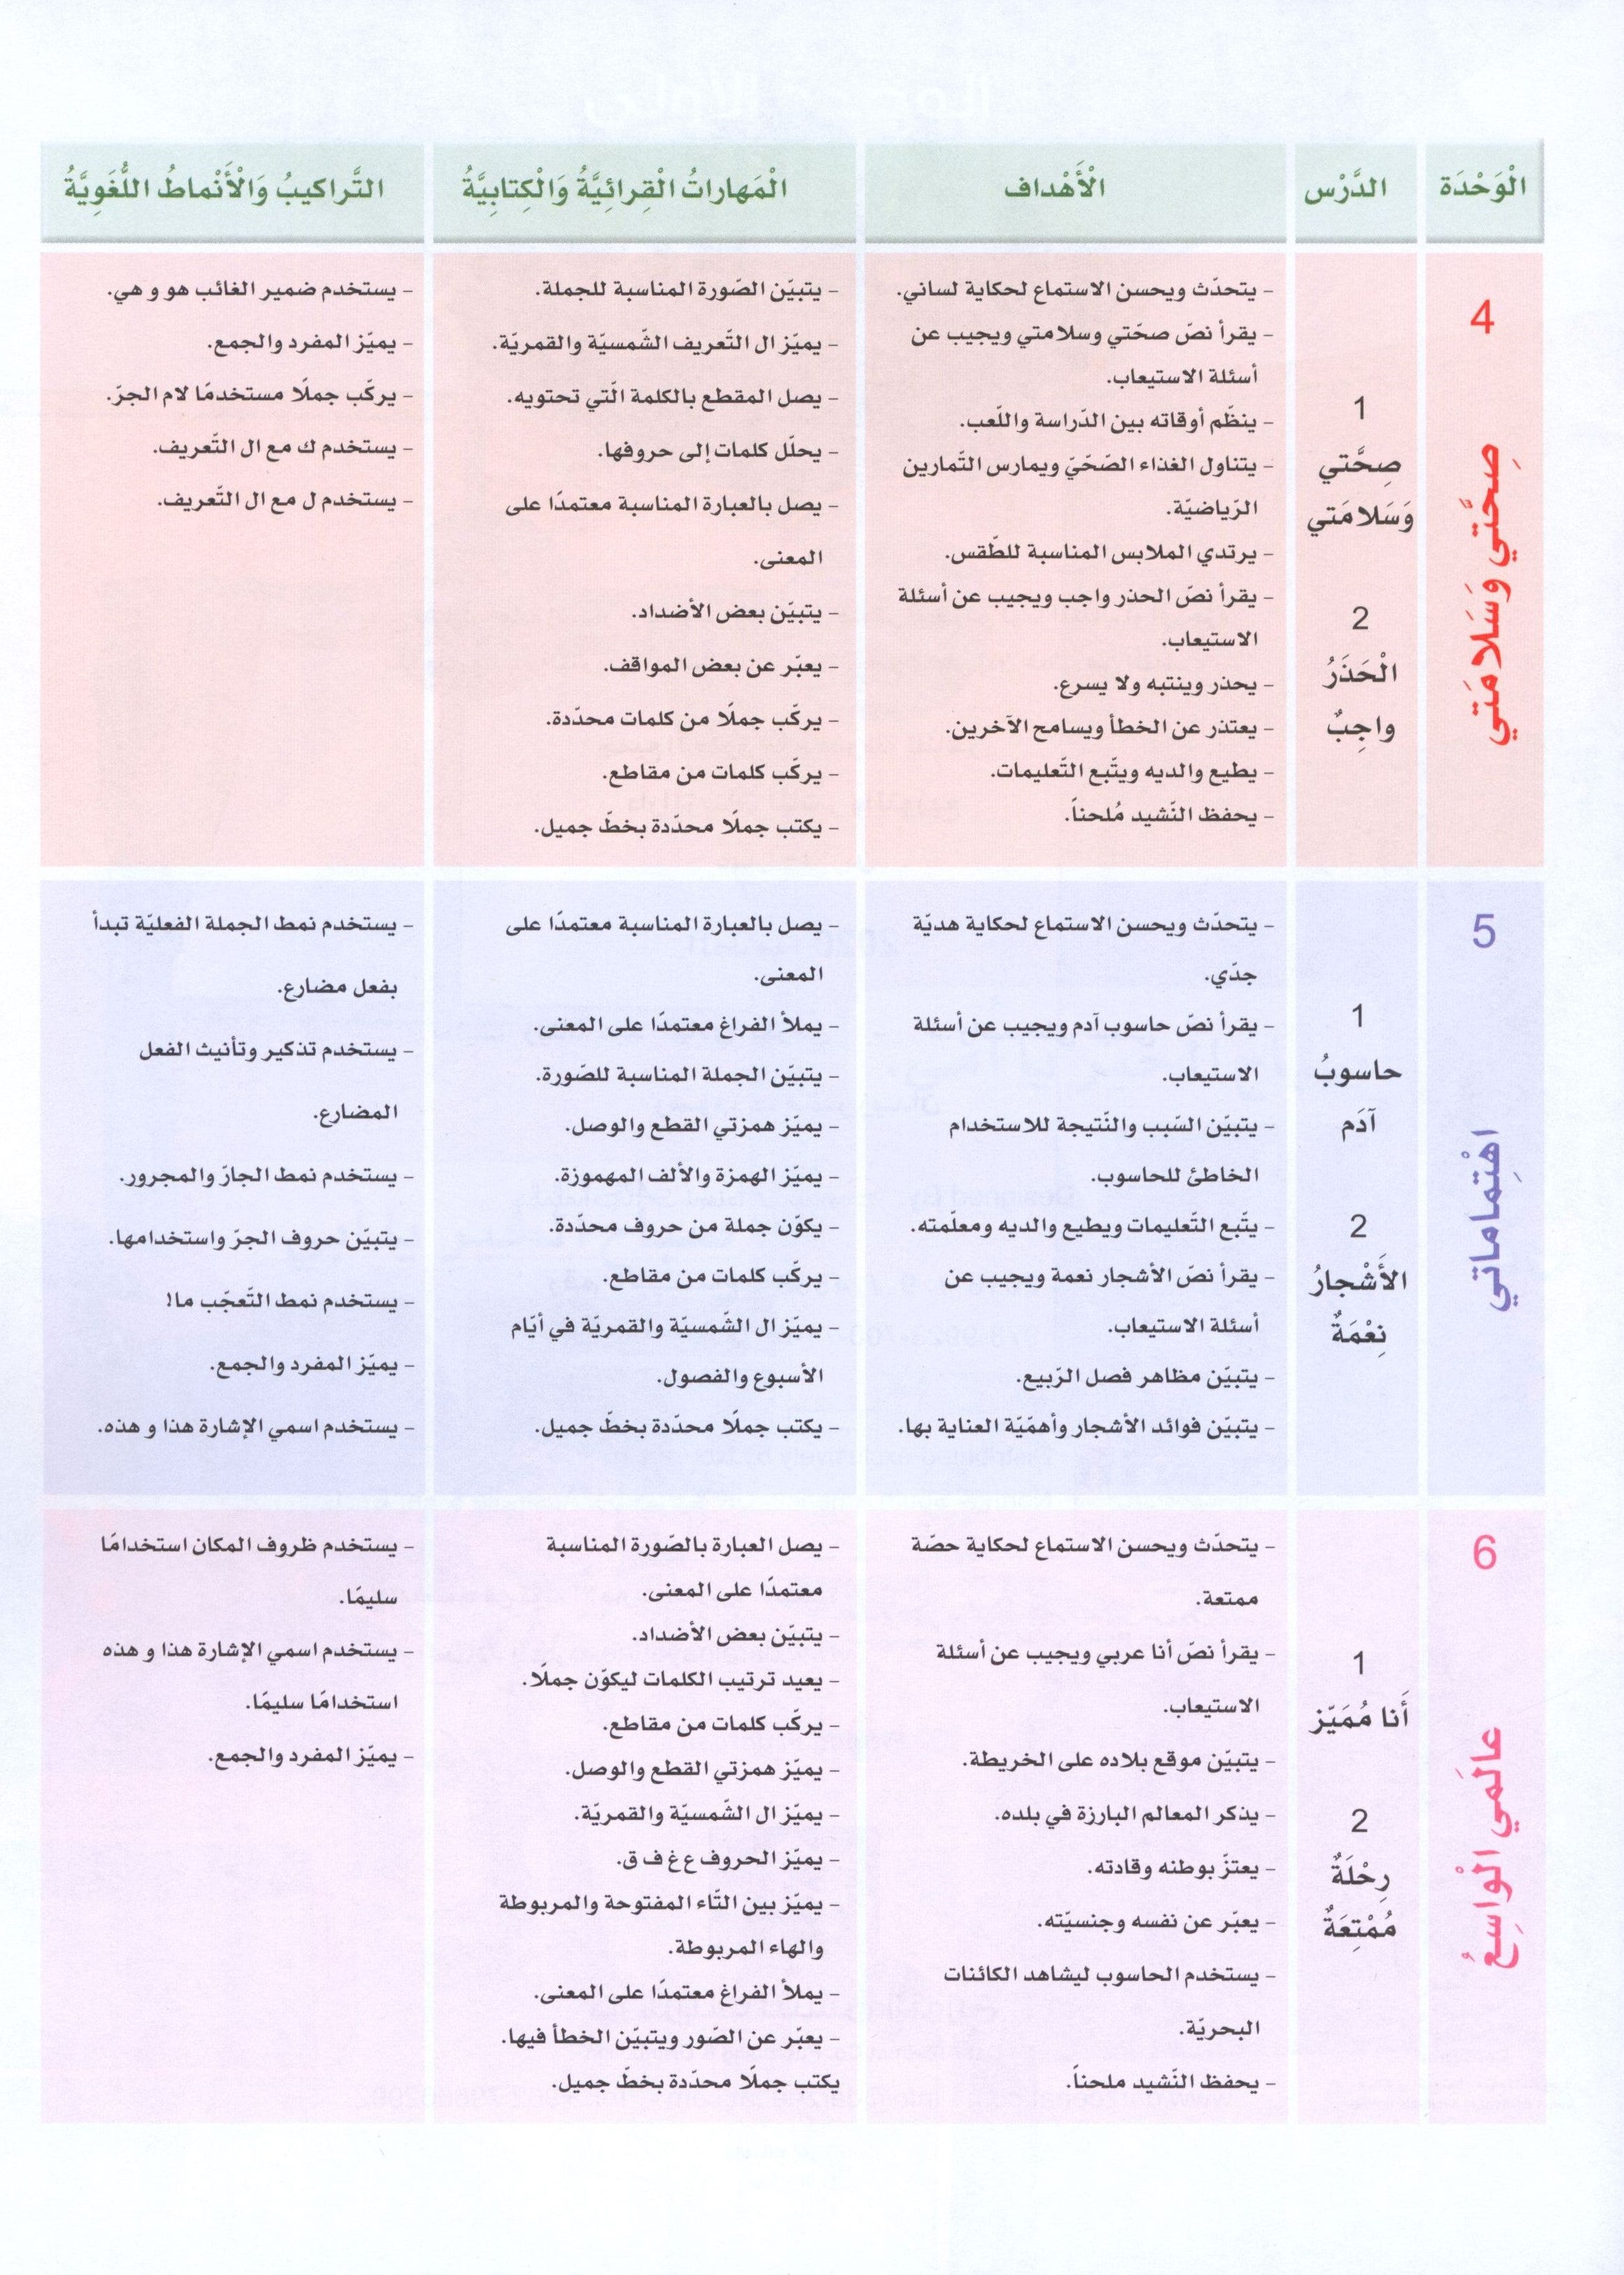 الْوَحْدَة
الدَّرْس
الْأَهْداف
الْمَهاراتُ الْقِرائِيَّةُ وَالْكِتابِيَّةُ
التَّراكيبُ وَالْأَنْماطُ اللُّغَوِيَّةُ
4
صِحَّتي وَسَلامَتي
1
صِحَّتي
وَسَلامَتي
2
الْحَذَرُ
واجِبٌ
- يتحدّث ويحسن الاستماع لحكاية لساني.
- يقرأ نصّ صحّتي وسلامتي ويجيب عن
أسئلة الاستيعاب.
- ينظّم أوقاته بين الدّراسة واللّعب.
- يتناول الغذاء الصّحّيّ ويمارس التّمارين
الرّياضيّة.
- يرتدي الملابس المناسبة للطّقس.
- يقرأ نصّ الحذر واجب ويجيب عن أسئلة
الاستيعاب.
- يحذر وينتبه ولا يسرع.
- يعتذر عن الخطأ ويسامح الآخرين.
- يطيع والديه ويتّبع التّعليمات.
- يحفظ النّشيد مُلحناً.
- يتبيّن الصّورة المناسبة للجملة.
- يميّز ال التّعريف الشّمسيّة والقمريّة.
- يصل المقطع بالكلمة الّتي تحتويه.
- يحلّل كلمات إلى حروفها.
- يصل بالعبارة المناسبة معتمدًا على
المعنى.
- يتبيّن بعض الأضداد.
- يعبّر عن بعض المواقف.
- يركّب جملًا من كلمات محدّدة.
- يركّب كلمات من مقاطع.
- يكتب جملًا محدّدة بخطّ جميل.
- يستخدم ضمير الغائب هو و هي.
- يميّز المفرد والجمع.
- يركّب جملًا مستخدمًا لام الجرّ.
- يستخدم ك مع ال التّعريف.
- يستخدم ل مع ال التّعريف.
5
اهْتِماماتي
1
حاسوبُ
آدَم
2
الأَشْجارُ
نِعْمَةٌ
- يتحدّث ويحسن الاستماع لحكاية هديّة
جدّي.
- يقرأ نصّ حاسوب آدم ويجيب عن أسئلة
الاستيعاب.
- يتبيّن السّبب والنّتيجة للاستخدام
الخاطئ للحاسوب.
- يتّبع التّعليمات ويطيع والديه ومعلّمته.
- يقرأ نصّ الأشجار نعمة ويجيب عن
أسئلة الاستيعاب.
- يتبيّن مظاهر فصل الرّبيع.
- يتبيّن فوائد الأشجار وأهمّيّة العناية بها.
- يصل بالعبارة المناسبة معتمدًا على
المعنى.
- يملأ الفراغ معتمدًا على المعنى.
- يتبيّن الجملة المناسبة للصّورة.
- يميّز همزتي القطع والوصل.
- يميّز الهمزة والألف المهموزة.
- يكوّن جملة من حروف محدّدة.
- يركّب كلمات من مقاطع.
- يميّز ال الشّمسيّة والقمريّة في أيّام
الأسبوع والفصول.
- يكتب جملًا محدّدة بخطّ جميل.
- يستخدم نمط الجملة الفعليّة تبدأ
بفعل مضارع.
- يستخدم تذكير وتأنيث الفعل
المضارع.
- يستخدم نمط الجارّ والمجرور.
- يتبيّن حروف الجرّ واستخدامها.
- يستخدم نمط التّعجّب ما!
- يميّز المفرد والجمع.
- يستخدم اسمي الإشارة هذا و هذه.
6
عالَمي الْواسِعُ
1
أَنا مُمَيّز
2
رِحْلَةٌ
مُمْتِعَةٌ
- يتحدّث ويحسن الاستماع لحكاية حصّة
ممتعة.
- يقرأ نصّ أنا عربي ويجيب عن أسئلة
الاستيعاب.
- يتبيّن موقع بلاده على الخريطة.
- يذكر المعالم البارزة في بلده.
- يعتزّ بوطنه وقادته.
- يعبّر عن نفسه وجنسيّته.
- يستخدم الحاسوب ليشاهد الكائنات
البحريّة.
- يحفظ النّشيد ملحناً.
- يصل العبارة بالصّورة المناسبة
معتمدًا على المعنى.
- يتبيّن بعض الأضداد.
- يعيد ترتيب الكلمات ليكوّن جملًا.
- يركّب كلمات من مقاطع.
- يميّز همزتي القطع والوصل.
- يميّز ال الشّمسيّة والقمريّة.
- يميّز الحروف ع غ ف ق.
- يميّز بين التّاء المفتوحة والمربوطة
والهاء المربوطة.
- يملأ الفراغ معتمدًا على المعنى.
- يعبّر عن الصّور ويتبيّن الخطأ فيها.
يكتب جملًا محدّدة بخطّ جميل.
- يستخدم ظروف المكان استخدامًا
سليمًا.
- يستخدم اسمي الإشارة هذا و هذه
استخدامًا سليمًا.
- يميّز المفرد والجمع.